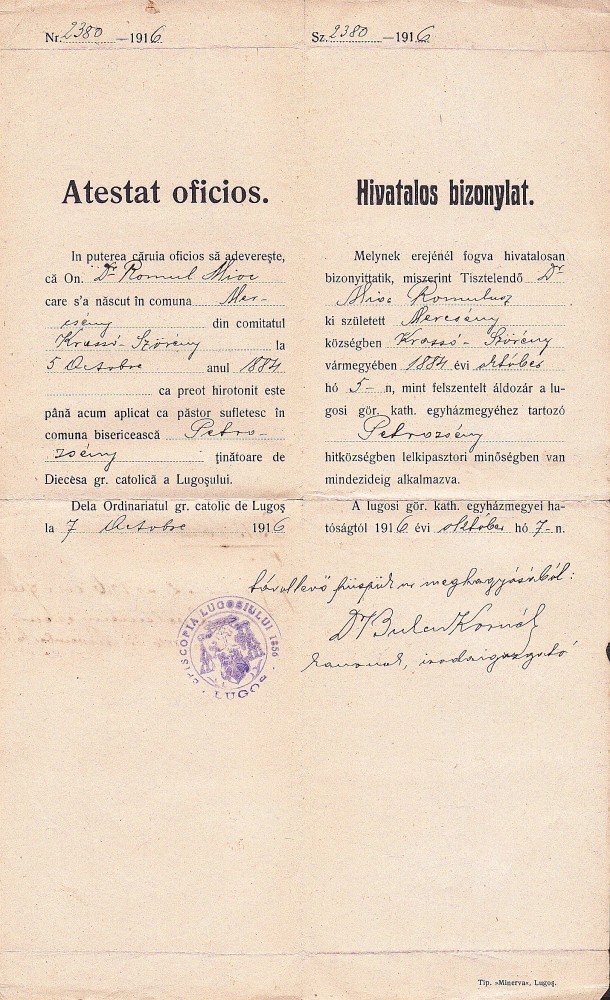 Nr. 2380 —1916
Atestat oficios.
In puterea căruia oficios să adevereşte,
că On. Dr Romul Mioc
care s'a născut în comuna Mer-
csény din comitatul
Krassó-Szörény la
5 Octobre anul 1884
ca preot hirotonit este
până acum aplicat ca păstor sufletesc în
comuna bisericească Petro-
zsény ţinătoare de
Diecésa gr. catolică a Lugoşului.
Dela Ordinariatul gr. catolic de Lugoş
la 7 Octobre 1916
Sz. 2380 —1916
Hivatalos bizonylat.
Melynek erejénél fogva hivatalosan
bizonyittatik, miszerint Tisztelendő Dr
Mioc Romulusz
ki született Mercsény
községben Krassó-Szörény
vármegyében 1884 évi október
hó 5-n, mint felszentelt áldozár a lu-
gosi gör. kath. egyházmegyéhez tartozó
Petrozsény
hitközségben lelkipasztori minőségben van
mindezideig alkalmazva.
A lugosi gör. kath. egyházmegyei ha-
tóságtól 1916 évi október hó 7-n.
távollevő püspök úr meghagyásából:
Dr Bulcu Kornél
kanonok, irodaigazgató
EPISCOPIA LUGOSIULUI 1856
LUGOS
Tip. »Minerva«, Lugoş.